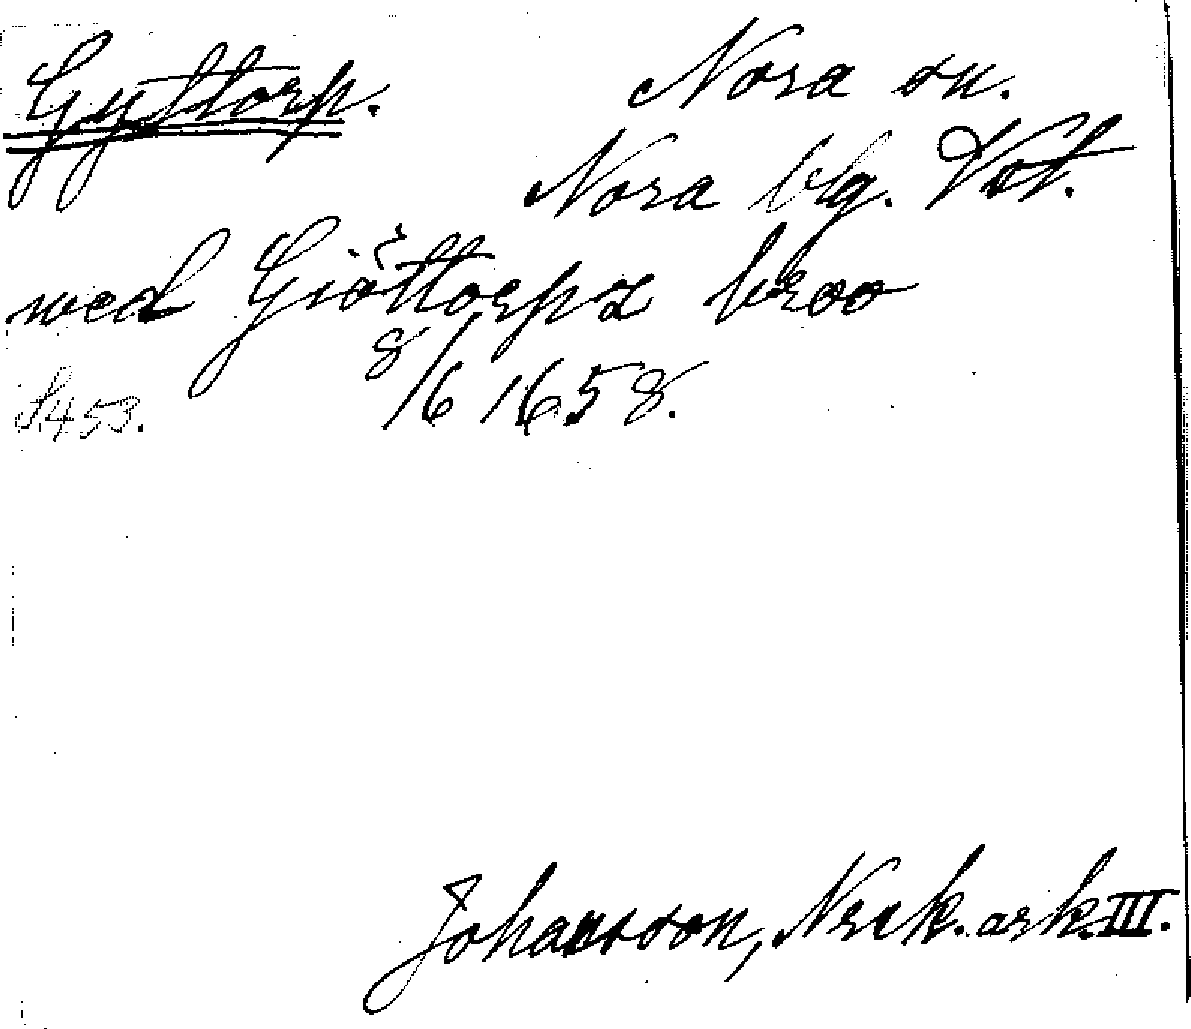 Gyttorp.
Nora sn.
Nora blg. Vstm.
wed Giöttorpz broo
8/6 1658.
S. 453.
Johansson, Nrck. ark. III.